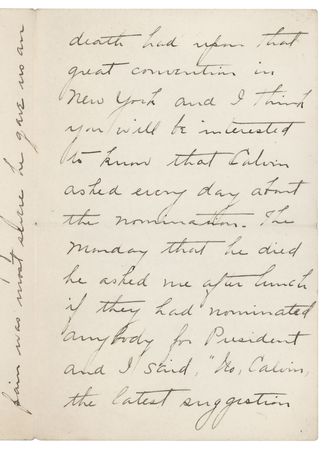 death had upon that
great convention in
New York and I think
you will be interested
to know that Calvin
asked every day about
the nomination. The
Monday that he died
he asked me after lunch
if they had nominated
anybody for President
and I said, "No, Calvin,
the latest suggestion
pain was most severe he gave us an